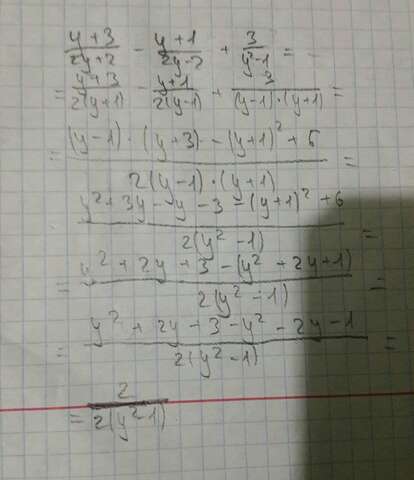 (y+3)/(2y+2) - (y+1)/(2y-2) + 3/(y²-1) =
= (y+3)/(2(y+1)) - (y+1)/(2(y-1)) + 3/((y-1)·(y+1)) =
= ((y-1)·(y+3) - (y+1)² + 6)/(2(y-1)·(y+1)) =
(y²+3y-y-3-(y+1)²+6)/(2(y²-1)) =
= (y²+2y+3-(y²+2y+1))/(2(y²-1)) =
= (y²+2y+3-y²-2y-1)/(2(y²-1)) =
= 2/(2(y²-1))